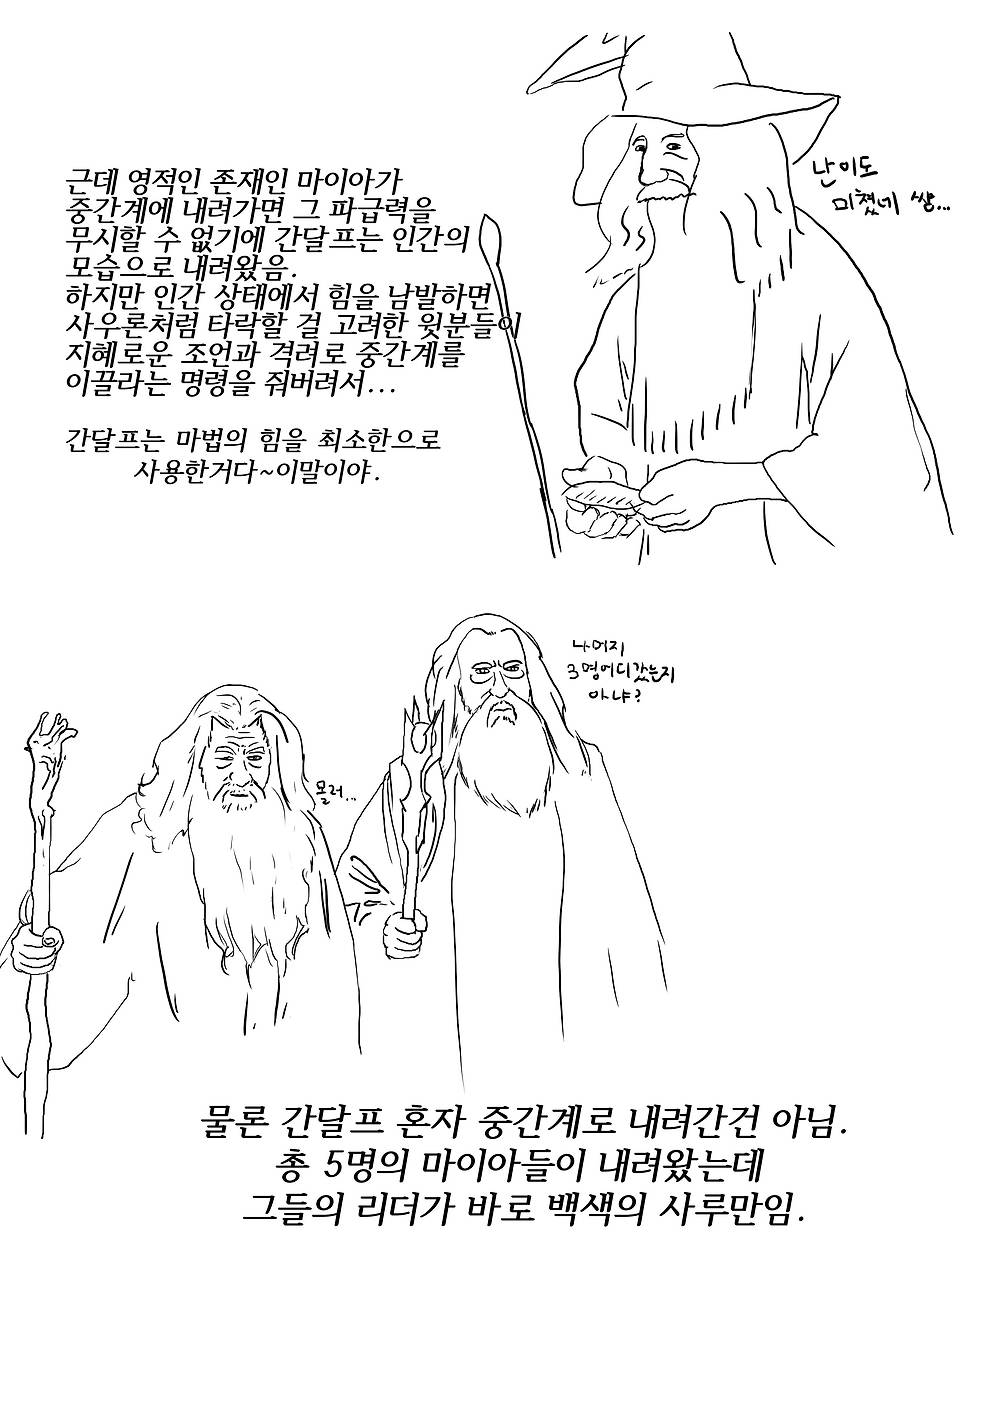 근데 영적인 존재인 마이아가
중간계에 내려가면 그 파급력을
무시할 수 없기에 간달프는 인간의
모습으로 내려왔음.
하지만 인간 상태에서 힘을 남발하면
사우론처럼 타락할 걸 고려한 윗분들이
지혜로운 조언과 격려로 중간계를
이끌라는 명령을 줘버려서...
간달프는 마법의 힘을 최소한으로
사용한거다~이말이야.
난이도
미쳤네 쌍...
나머지
3명어디갔는지
아냐?
몰러...
물론 간달프 혼자 중간계로 내려간건 아님.
총 5명의 마이아들이 내려왔는데
그들의 리더가 바로 백색의 사루만임.